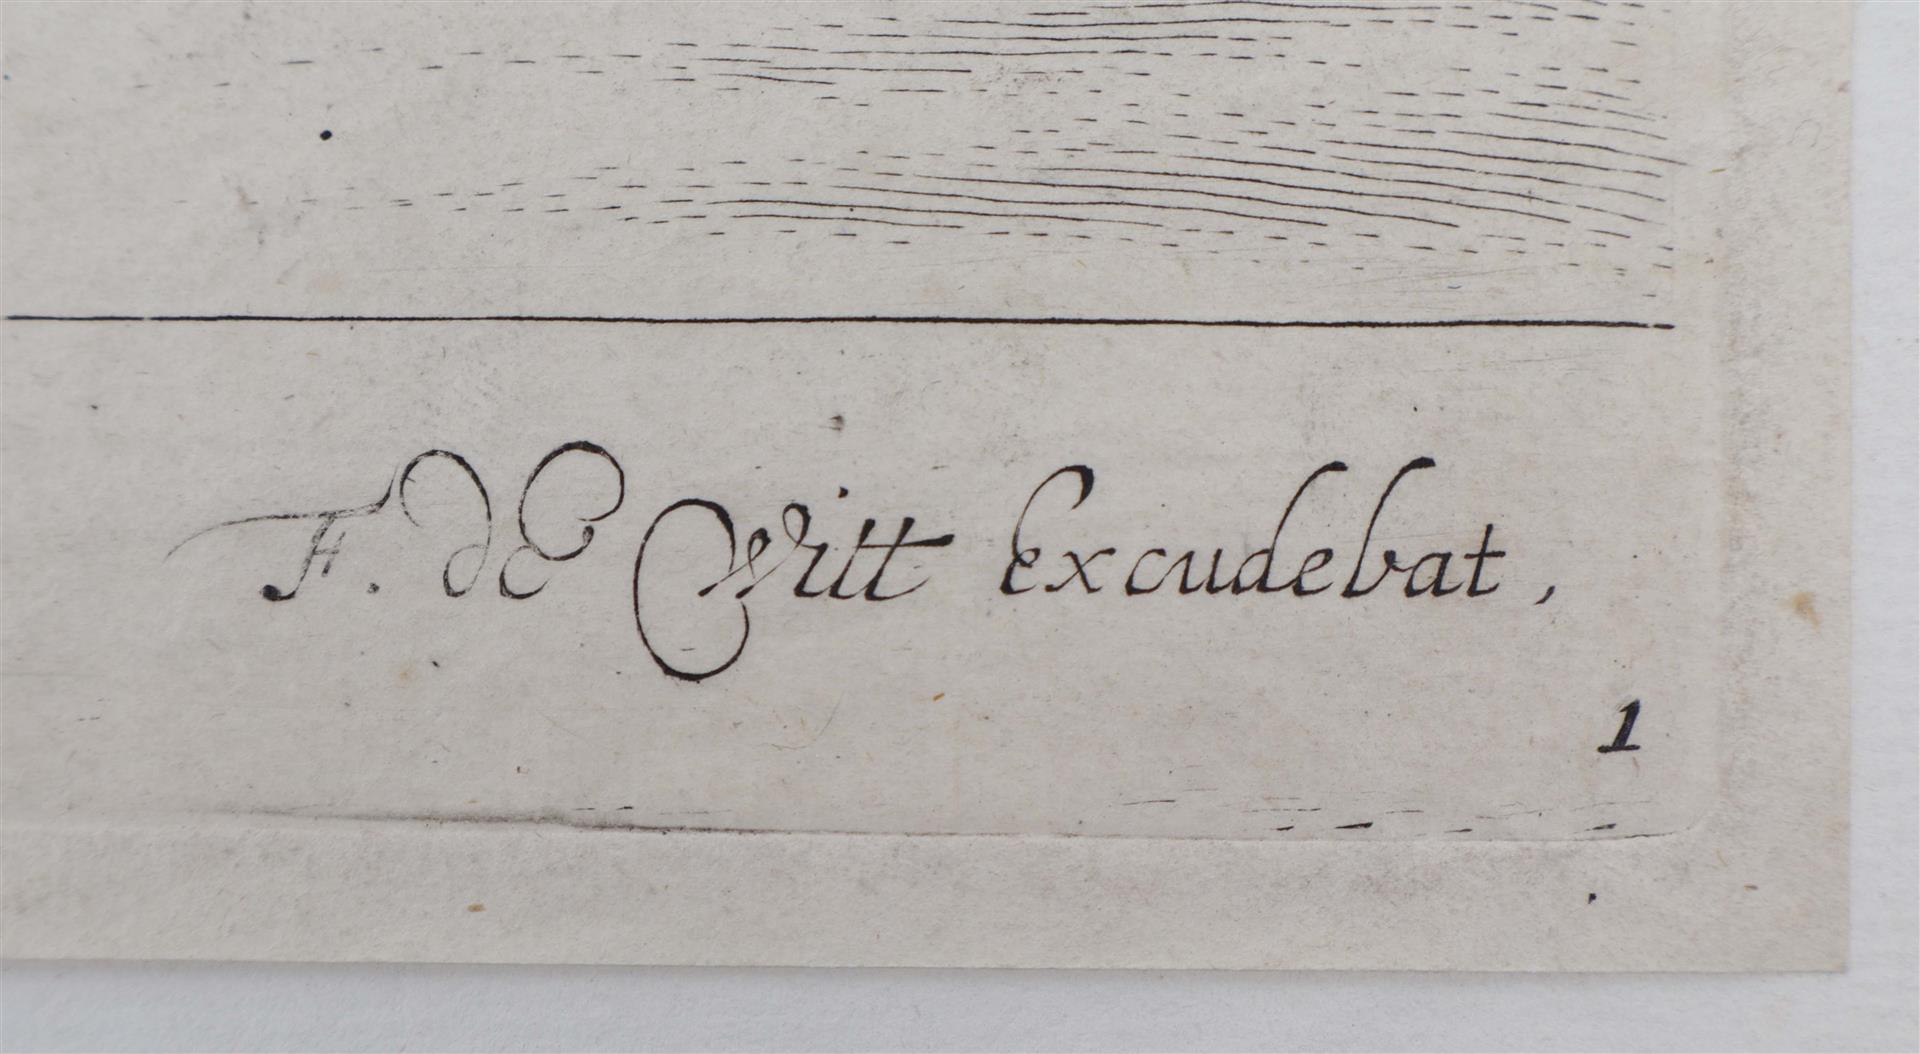 F. de Witt excudebat,
1